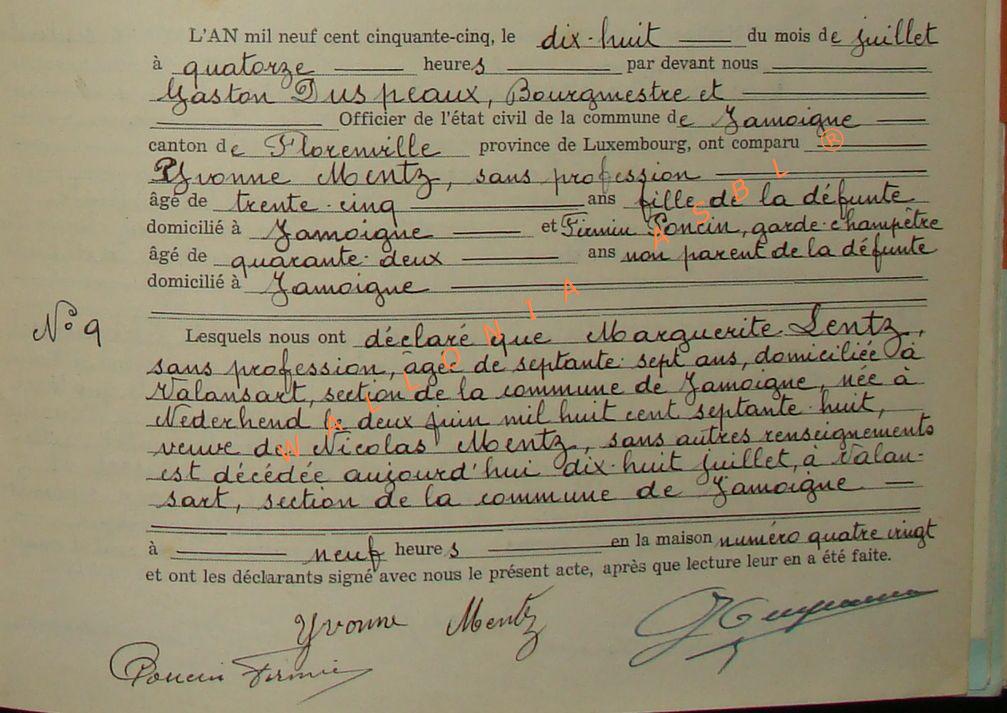 L'AN mil neuf cent cinquante-cinq, le dix-huit du mois de juillet
à quatorze heures par devant nous
Gaston Duspeaux, Bourgmestre et
Officier de l'état civil de la commune de Jamoigne
canton de Florenville province de Luxembourg, ont comparu
Yvonne Mentz, sans profession
âgé de trente-cinq ans fille de la défunte
domicilié à Jamoigne et Firmin Poncin, garde-champêtre
âgé de quarante-deux ans non parent de la défunte
domicilié à Jamoigne
N° 9
Lesquels nous ont déclaré que Marguerite Lentz,
sans profession, âgée de septante-sept ans, domiciliée à
Valansart, section de la commune de Jamoigne, née à
Nederhend le deux juin mil huit cent septante-huit,
veuve de Nicolas Mentz, sans autres renseignements
est décédée aujourd'hui dix-huit juillet, à Valan-
sart, section de la commune de Jamoigne
à neuf heures en la maison numéro quatre vingt
et ont les déclarants signé avec nous le présent acte, après que lecture leur en a été faite.
Yvonne Mentz
Poncin Firmin
WALLONIA ASBL ®